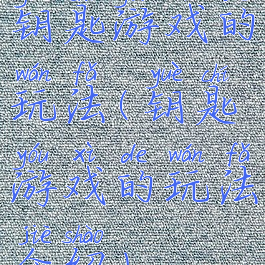 钥匙游戏的
wán fǎ yuè chí
玩法(钥匙
yóu xì de wán fǎ
游戏的玩法
jiè shào
介绍)